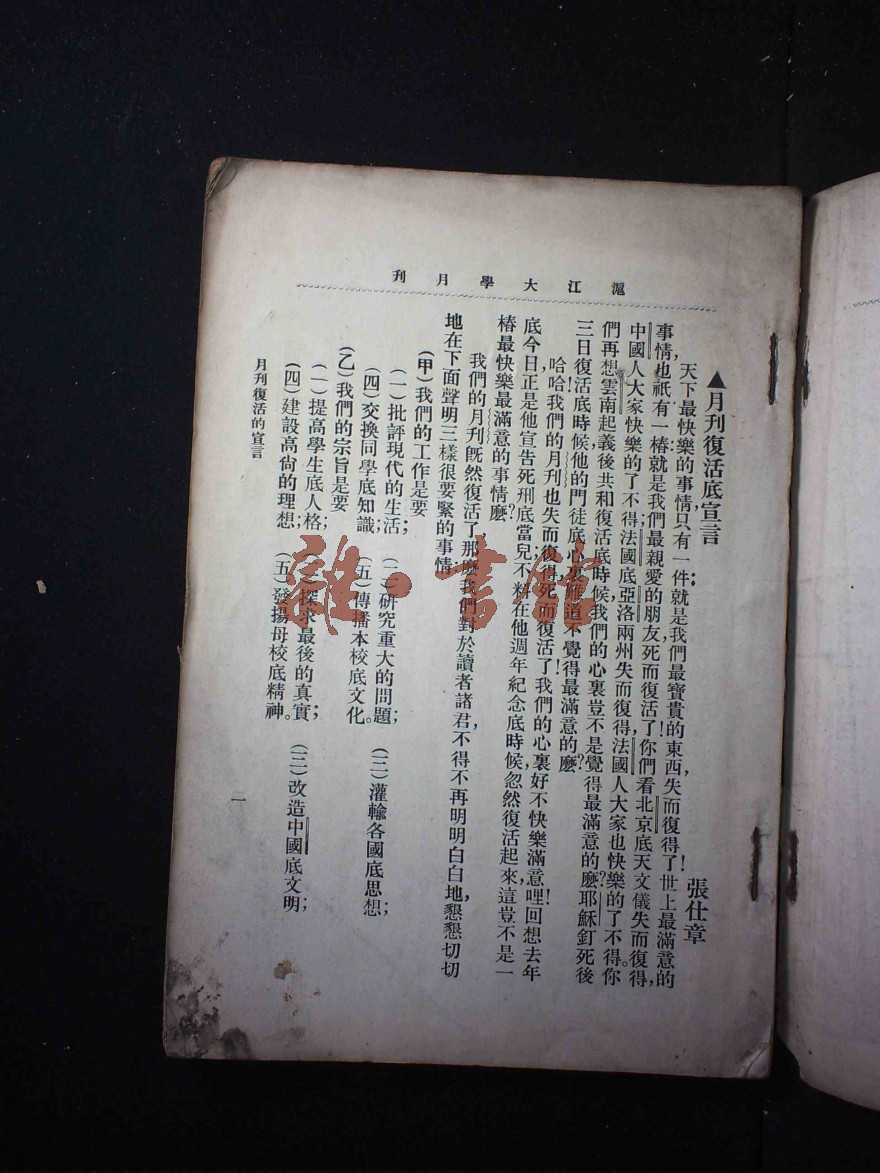 滬江大學月刊
▲月刊復活底宣言
張仕章
天下最快樂的事情,只有一件:就是我們最寶貴的東西失而復得了!世上最滿意的
事情,也祇有一樁:就是我們最親愛的朋友死而復活了!你們看北京底天文儀失而復得,
中國人大家快樂的了不得;法國底亞洛兩州失而復得,法國人大家也快樂的了不得。你
們再想雲南起義後共和復活底時候,我們的心裏豈不是覺得最滿意的麼?耶穌釘死後
三日復活底時候,他的門徒底心裏難道不覺得最滿意的麼?
哈哈!我們的月刊也失而復得,死而復活了!我們的心裏好不快樂滿意哩!回想去年
底今日,正是他宣告死刑底當兒,不料在他週年紀念底時候,忽然復活起來,這豈不是一
樁最快樂最滿意的事情麼?
我們的月刊旣然復活了,那麼我們對於讀者諸君,不得不再明明白白地,懇懇切切
地在下面聲明三樣很要緊的事情:
(甲)我們的工作是要
(一)批評現代的生活; (二)研究重大的問題; (三)灌輸各國底思想;
(四)交換同學底知識; (五)傳播本校底文化。
(乙)我們的宗旨是要
(一)提高學生底人格; (二)探求最後的真實; (三)改造中國底文明;
(四)建設高尙的理想; (五)發揚母校底精神。
月刊復活的宣言
一
雜·書館